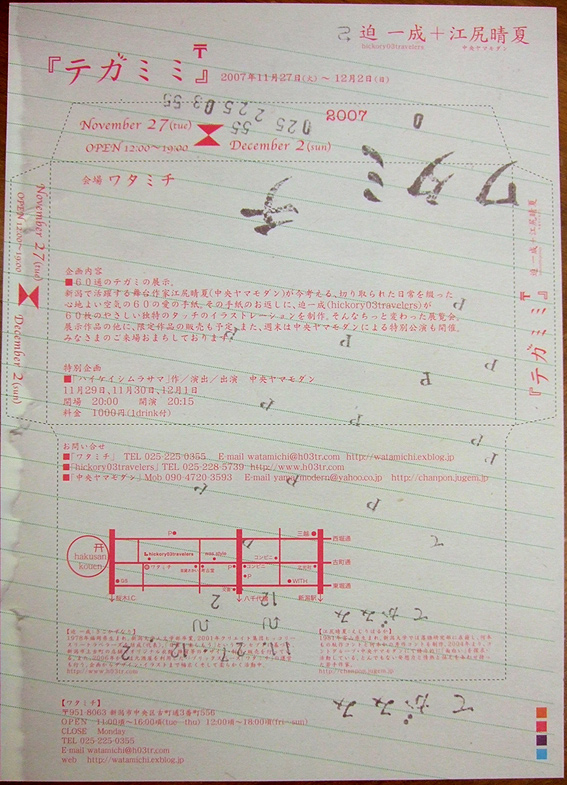 迫 一成＋江尻晴夏
hickory03travelers 中央ヤマモダン
『テガミミ』
〒
2007年11月27日(火) ～ 12月2日(日)
2007
November 27(tue)
OPEN 12:00～19:00
December 2(sun)
025 225 0355
55
会場 ワタミチ
ワタミチ
November 27(tue)
OPEN 12:00～19:00
December 2(sun)
迫 一成＋江尻晴夏
『テガミミ』
〒
企画内容
■６０通のテガミの展示。
新潟で活躍する舞台作家江尻晴夏(中央ヤマモダン)が今考える、切り取られた日常を綴った
心地よい空気の６０の愛の手紙。その手紙のお返しに、迫一成(hickory03travelers)が
６０枚のやさしい独特のタッチのイラストレーションを制作。そんなちっと変わった展覧会。
展示作品の他に、限定作品の販売も予定。また、週末は中央ヤマモダンによる特別公演も開催。
みなさまのご来場おまちしております。
特別企画
■「ハイケイシムラサマ」作／演出／出演 中央ヤマモダン
11月29日、11月30日、12月1日
開場 20:00 開演 20:15
料金 1000円(1drink付)
お問い合せ
■「ワタミチ」 TEL 025-225-0355 E-mail watamichi@h03tr.com http://watamichi.exblog.jp
■「hickory03travelers」TEL 025-228-5739 http://www.h03tr.com
■「中央ヤマモダン」Mob 090-4720-3593 E-mail yamamodern@yahoo.co.jp http://chanpon.jugem.jp
P
三越
西堀通
hakusan kouen
hickory03travelers
コンビニ
ワタミチ
P
コンビニ
古町通
P
WITH
東堀通
八千代橋
新潟駅
てがみみ
てがみみ
http://www.h03tr.com
http://chanpon.jugem.jp
【ワタミチ】
〒951-8063 新潟市中央区古町通3番町556
OPEN 11:00頃～16:00頃(tue-thu) 12:00頃～18:00頃(fri-sun)
CLOSE Monday
TEL 025-225-0355
E-mail watamichi@h03tr.com
web http://watamichi.exblog.jp